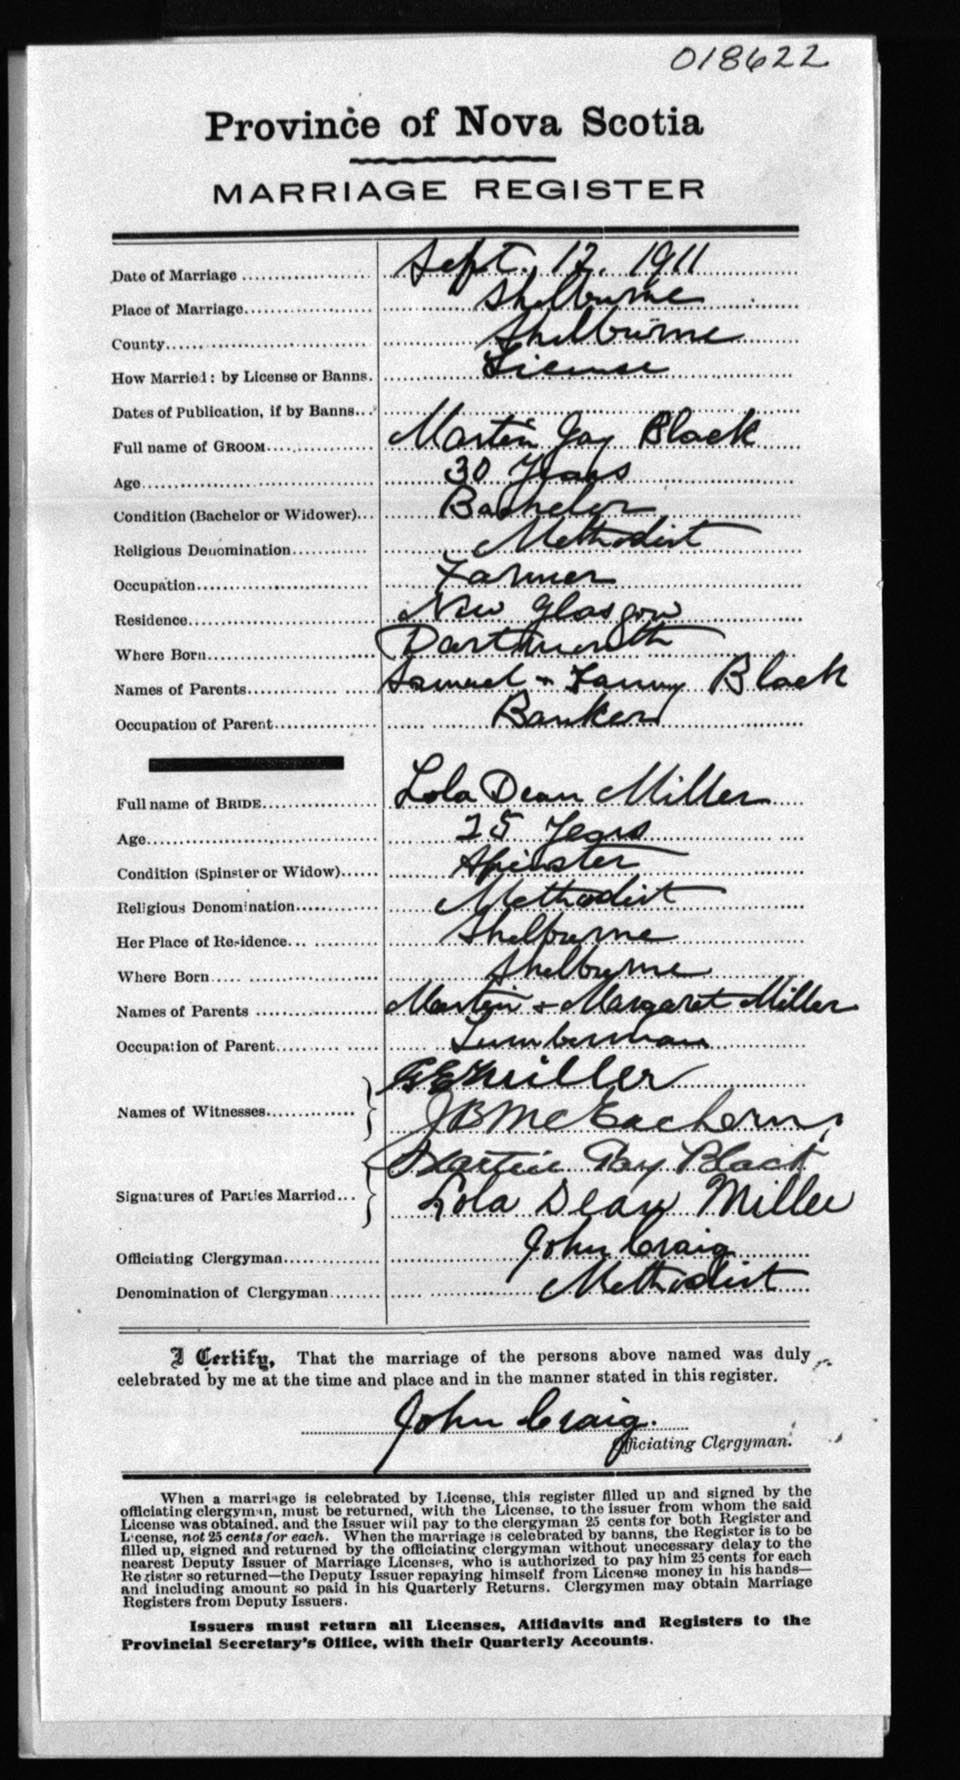 018622
Province of Nova Scotia
MARRIAGE REGISTER
Date of Marriage Sept. 12. 1911
Place of Marriage Shelburne
County Shelburne
How Married: by License or Banns. License
Dates of Publication, if by Banns
Full name of GROOM Martin Gay Black
Age 30 Years
Condition (Bachelor or Widower) Bachelor
Religious Denomination Methodist
Occupation Farmer
Residence New Glasgow
Where Born Dartmouth
Names of Parents Samuel & Fanny Black
Occupation of Parent Banker
Full name of BRIDE Lola Dean Miller
Age 25 Years
Condition (Spinster or Widow) Spinster
Religious Denomination Methodist
Her Place of Residence Shelburne
Where Born Shelburne
Names of Parents Martin & Margaret Miller
Occupation of Parent Lumberman
G E Miller
Names of Witnesses
J B McEachern
Martin Gay Black
Signatures of Parties Married
Lola Dean Miller
Officiating Clergyman John Craig
Denomination of Clergyman Methodist
I Certify, That the marriage of the persons above named was duly
celebrated by me at the time and place and in the manner stated in this register.
John Craig.
Officiating Clergyman.
When a marriage is celebrated by License, this register filled up and signed by the
officiating clergyman, must be returned, with the License, to the issuer from whom the said
License was obtained, and the Issuer will pay to the clergyman 25 cents for both Register and
License, not 25 cents for each. When the marriage is celebrated by banns, the Register is to be
filled up, signed and returned by the officiating clergyman without unecessary delay to the
nearest Deputy Issuer of Marriage Licenses, who is authorized to pay him 25 cents for each
Register so returned—the Deputy Issuer repaying himself from License money in his hands—
and including amount so paid in his Quarterly Returns. Clergymen may obtain Marriage
Registers from Deputy Issuers.
Issuers must return all Licenses, Affidavits and Registers to the
Provincial Secretary's Office, with their Quarterly Accounts.